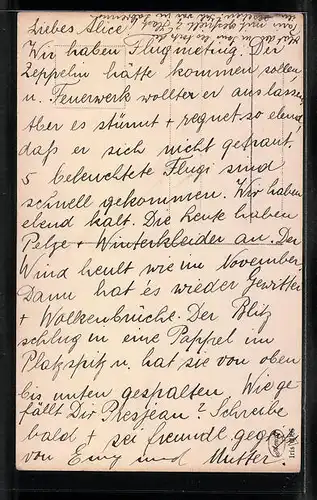 Liebes Alice
Wir haben Flugmeting. Der
Zeppelin hätte kommen sollen
u. Feuerwerk wollter er auslassen
Aber es stürmt + regnet so elend,
daß er sich nicht getraut.
5 beleuchtete Flugi sind
schnell gekommen. Wir haben
elend kalt. Die Leute haben
Pelze + Winterkleider an. Der
Wind heult wie im November,
Dann hat es wieder Gewitter
+ Wolkenbrüche. Der Blitz
schlug in eine Pappel im
Platzspitz u. hat sie von oben
bis unten gespalten. Wie ge-
fällt Dir Presjean? Schreibe
bald + sei freundl. gegrüßt
von Emy und Mutter.
Iris